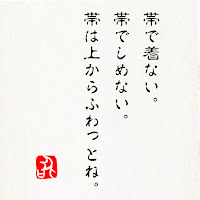 帯で着ない。
帯でしめない。
帯は上からふわっとね。